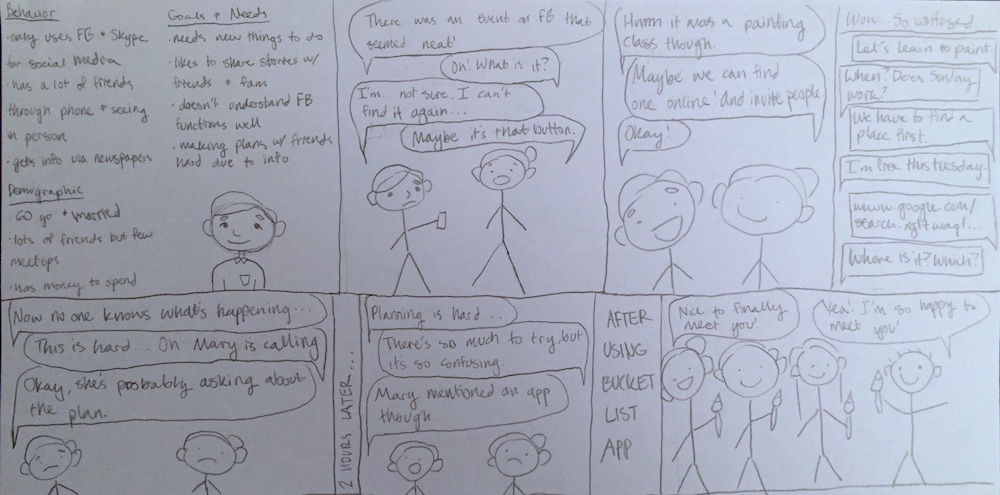 Behavior
• only uses FB + Skype
for social media
• has a lot of friends
through phone + seeing
in person
• gets info via newspapers
Demographic
• 60 yo + married
• lots of friends but few
meetups
• has money to spend
Goals + Needs
• needs new things to do
• likes to share stories w/
friends + fam
• doesn't understand FB
functions well
• making plans w/ friends
hard due to info
There was an event on FB that
seemed neat!
Oh! What is it?
I'm... not sure. I can't
find it again...
Maybe it's that button.
Hmm it was a painting
class though.
Maybe we can find
one online! And invite people
Okay!
Wow... So confused...
Let's learn to paint
When? Does Sunday
work?
We have to find a
place first.
I'm free this Tuesday.
www.google.com/
search.
Where is it? Which?
Now no one knows what's happening...
This is hard... Oh Mary is calling
Okay, she's probably asking about
the plan.
2 HOURS LATER...
Planning is hard...
There's so much to try, but
it's so confusing.
Mary mentioned an app
though.
AFTER
USING
BUCKET
LIST
APP
Nice to finally
meet you!
Yea! I'm so happy to
meet you!